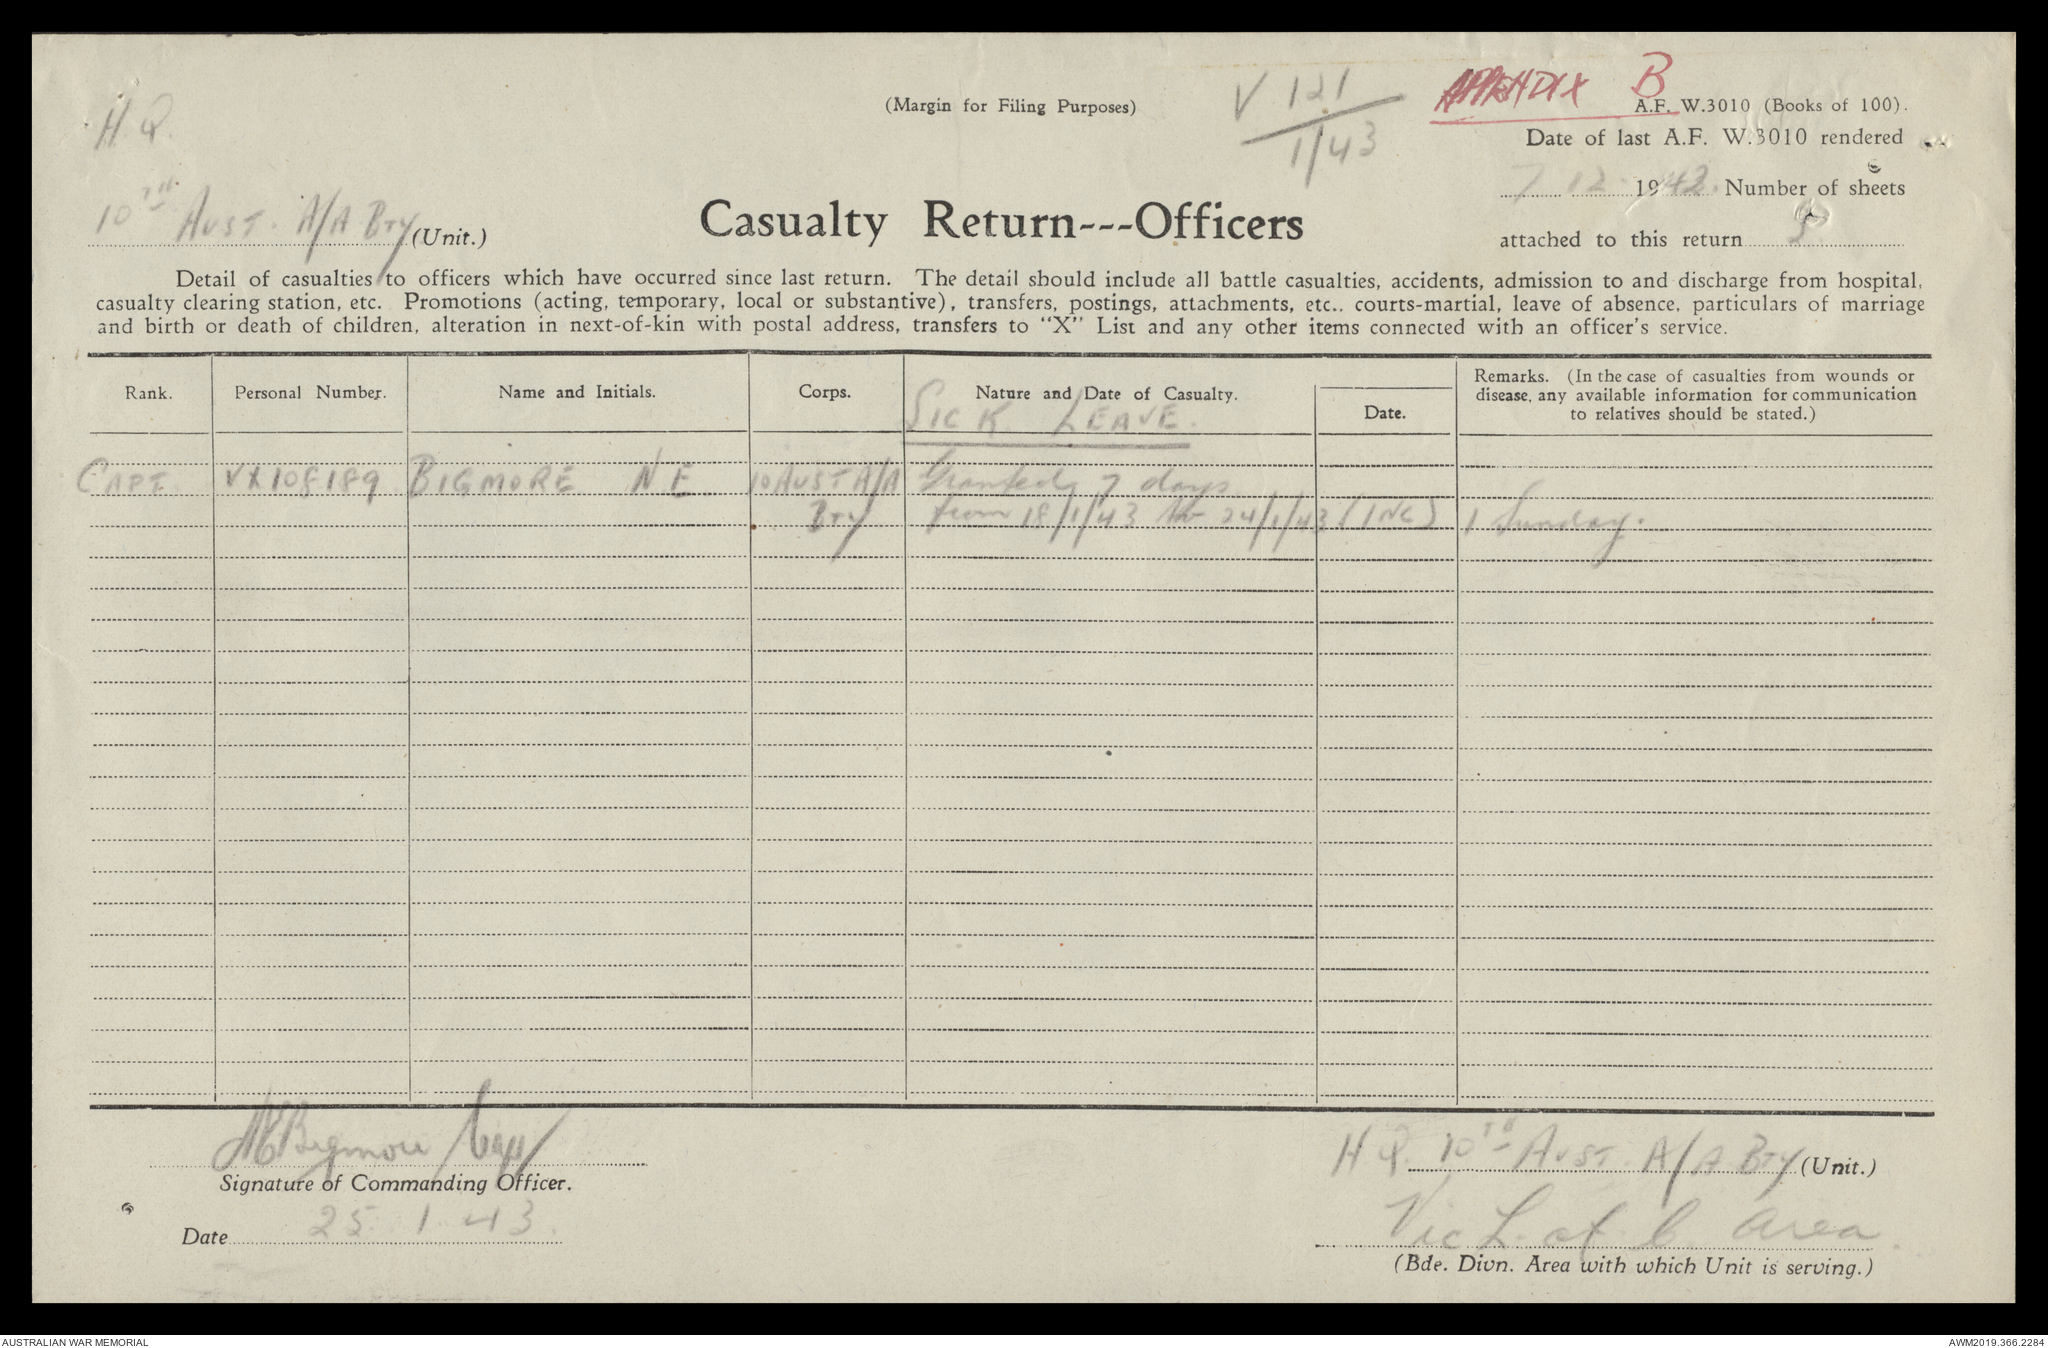 H.Q.
(Margin for Filing Purposes)
V 121
1/43
APPENDIX B
A.F. W.3010 (Books of 100).
Date of last A.F. W.3010 rendered
7 12 1942. Number of sheets
attached to this return
10TH AUST. A/A BTY (Unit.)
Casualty Return---Officers
Detail of casualties to officers which have occurred since last return. The detail should include all battle casualties, accidents, admission to and discharge from hospital,
casualty clearing station, etc. Promotions (acting, temporary, local or substantive), transfers, postings, attachments, etc.. courts-martial, leave of absence, particulars of marriage
and birth or death of children, alteration in next-of-kin with postal address, transfers to "X" List and any other items connected with an officer's service.
Rank. Personal Number. Name and Initials. Corps. Nature and Date of Casualty. Date. Remarks. (In the case of casualties from wounds or
disease, any available information for communication
to relatives should be stated.)
SICK LEAVE.
CAPT. VX108189 BIGMORE N.E. 10 AUST A/A Granted 7 days
BTY from 18/1/43 to 24/1/43 (INC) 1 Sunday.
NEBigmore Capt
Signature of Commanding Officer.
Date 25.1.43.
H.Q. 10TH AUST. A/A BTY (Unit.)
Vic L. of C. Area.
(Bde. Divn. Area with which Unit is serving.)
AUSTRALIAN WAR MEMORIAL
AWM2019.366.2284